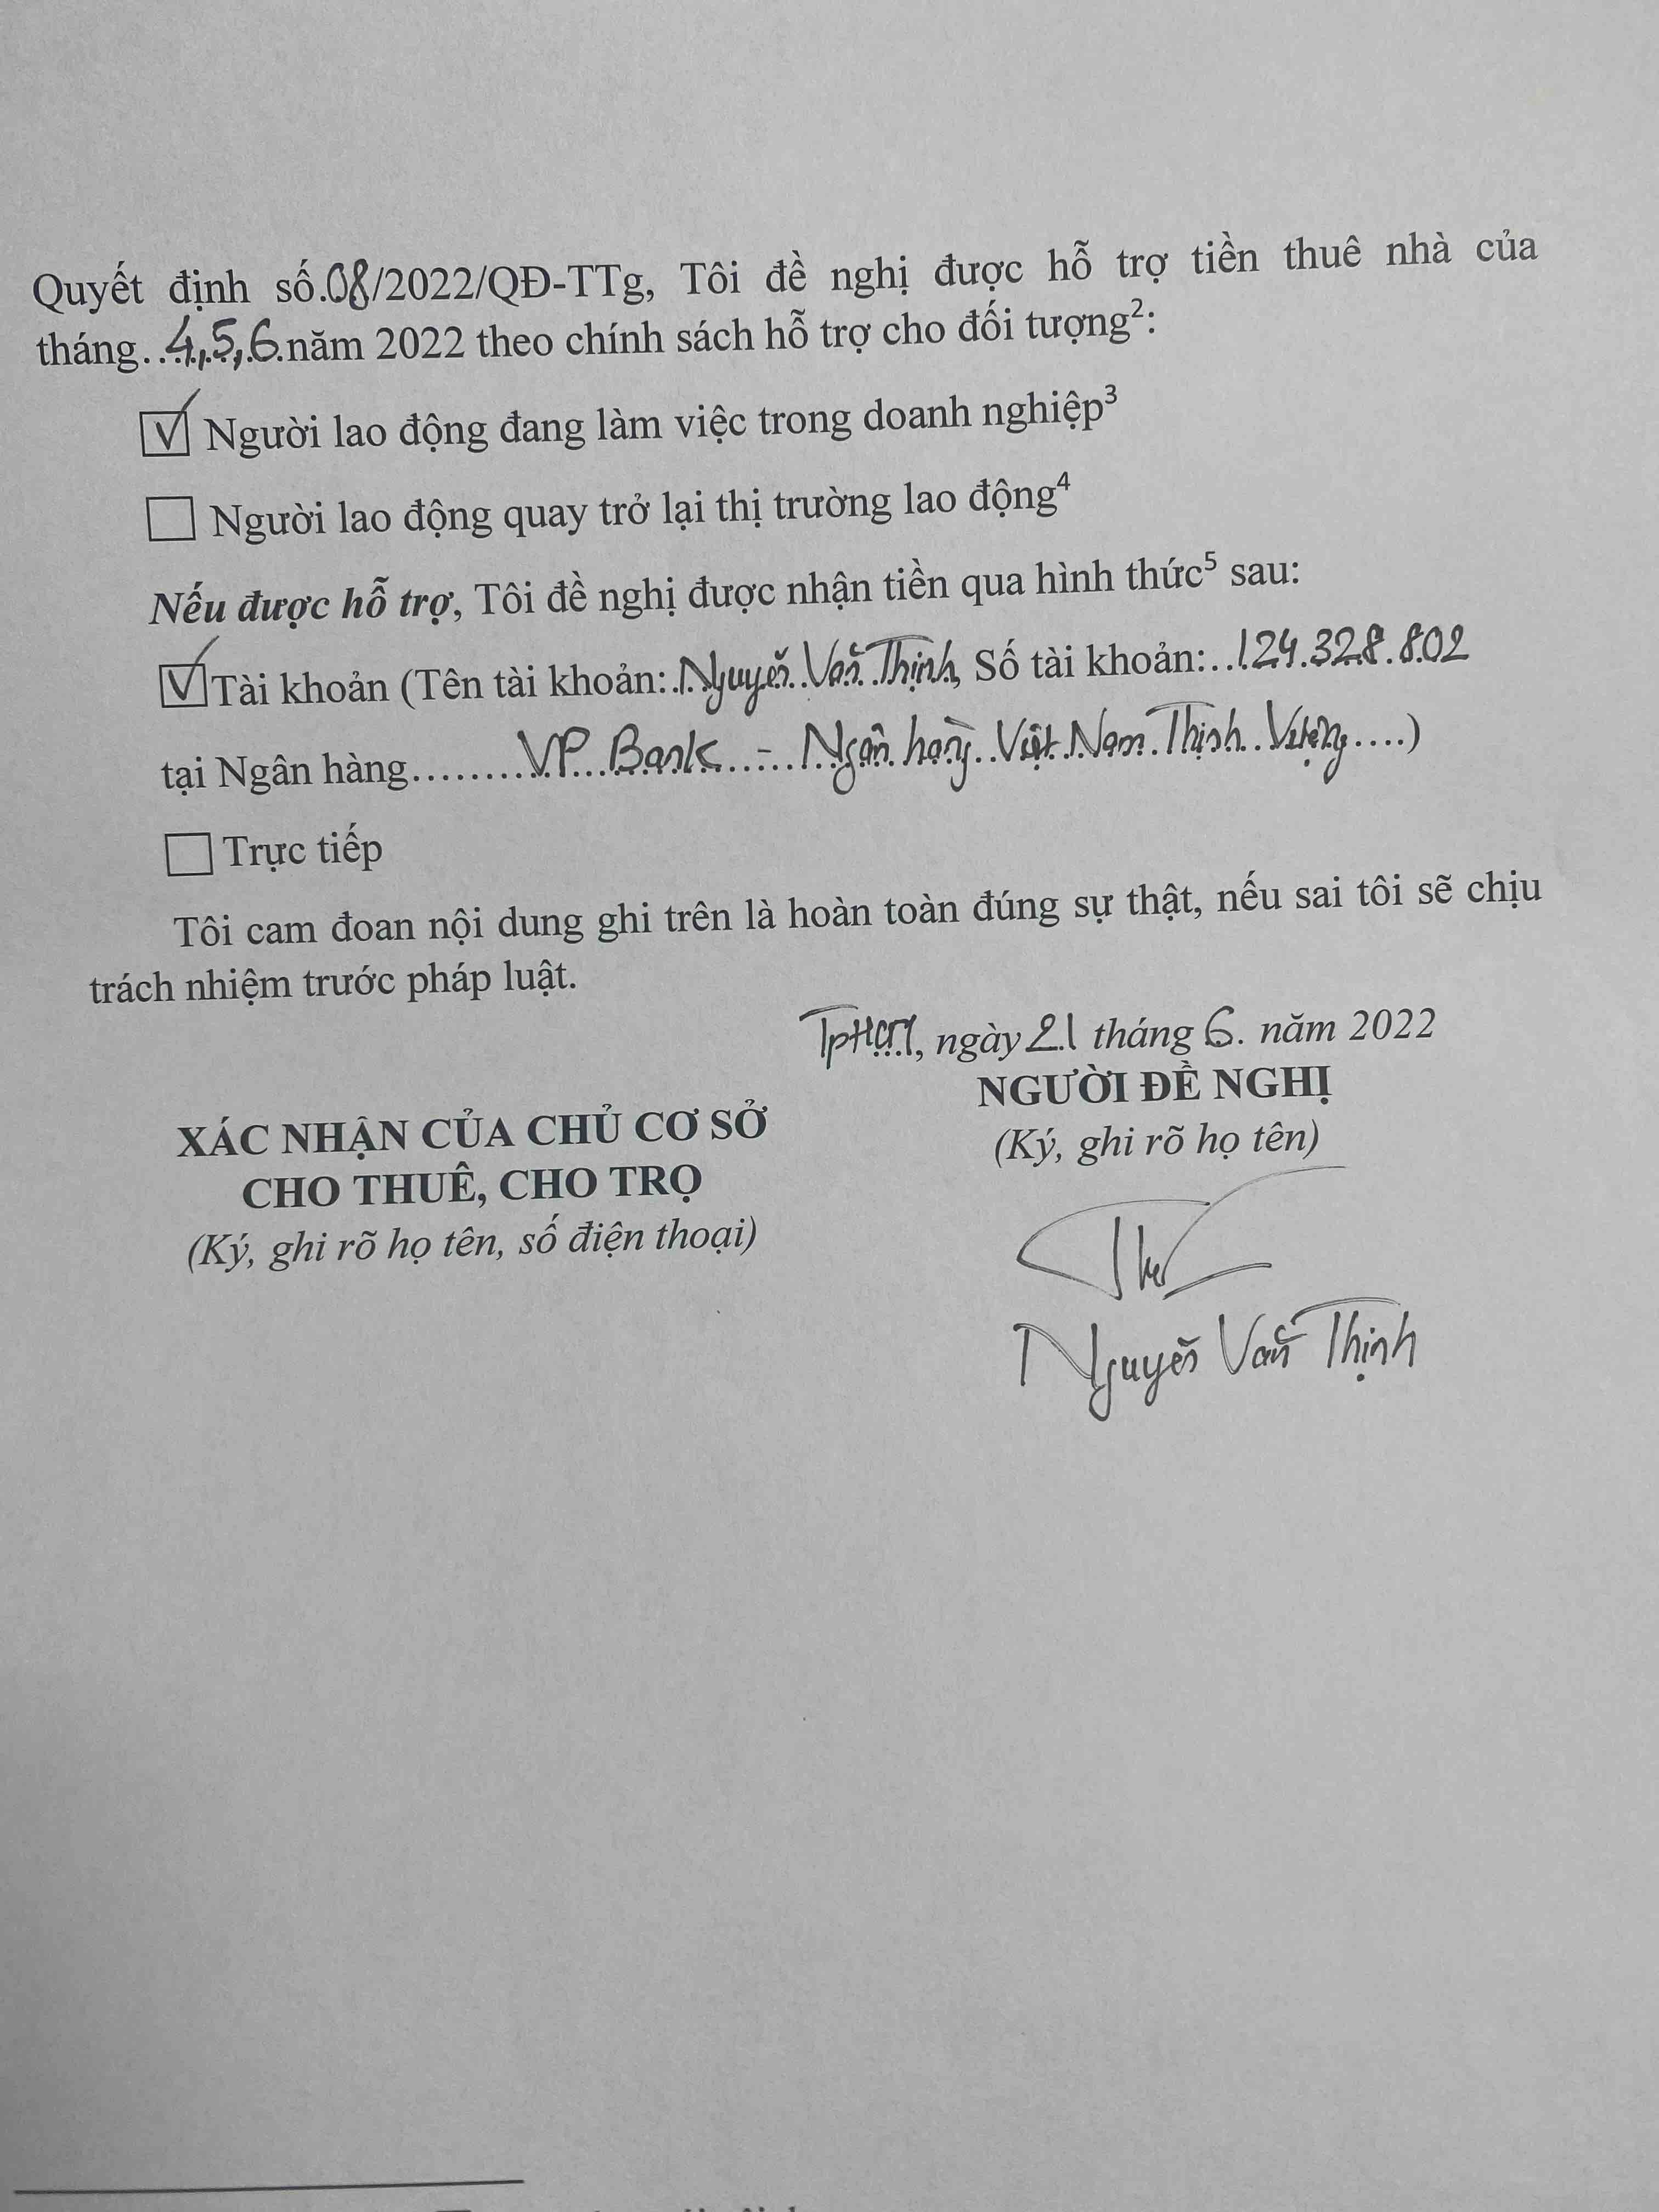 Quyết định số.08/2022/QĐ-TTg, Tôi đề nghị được hỗ trợ tiền thuê nhà của
tháng...4,5,6.năm 2022 theo chính sách hỗ trợ cho đối tượng²:
☑ Người lao động đang làm việc trong doanh nghiệp³
☐ Người lao động quay trở lại thị trường lao động⁴
Nếu được hỗ trợ, Tôi đề nghị được nhận tiền qua hình thức⁵ sau:
☑ Tài khoản (Tên tài khoản: Nguyễn Văn Thịnh, Số tài khoản: 124.328.802
tại Ngân hàng........VP Bank - Ngân hàng Việt Nam Thịnh Vượng....)
☐ Trực tiếp
Tôi cam đoan nội dung ghi trên là hoàn toàn đúng sự thật, nếu sai tôi sẽ chịu
trách nhiệm trước pháp luật.
TpHCM, ngày 21 tháng 6. năm 2022
NGƯỜI ĐỀ NGHỊ
(Ký, ghi rõ họ tên)
XÁC NHẬN CỦA CHỦ CƠ SỞ
CHO THUÊ, CHO TRỌ
(Ký, ghi rõ họ tên, số điện thoại)
Nguyễn Văn Thịnh